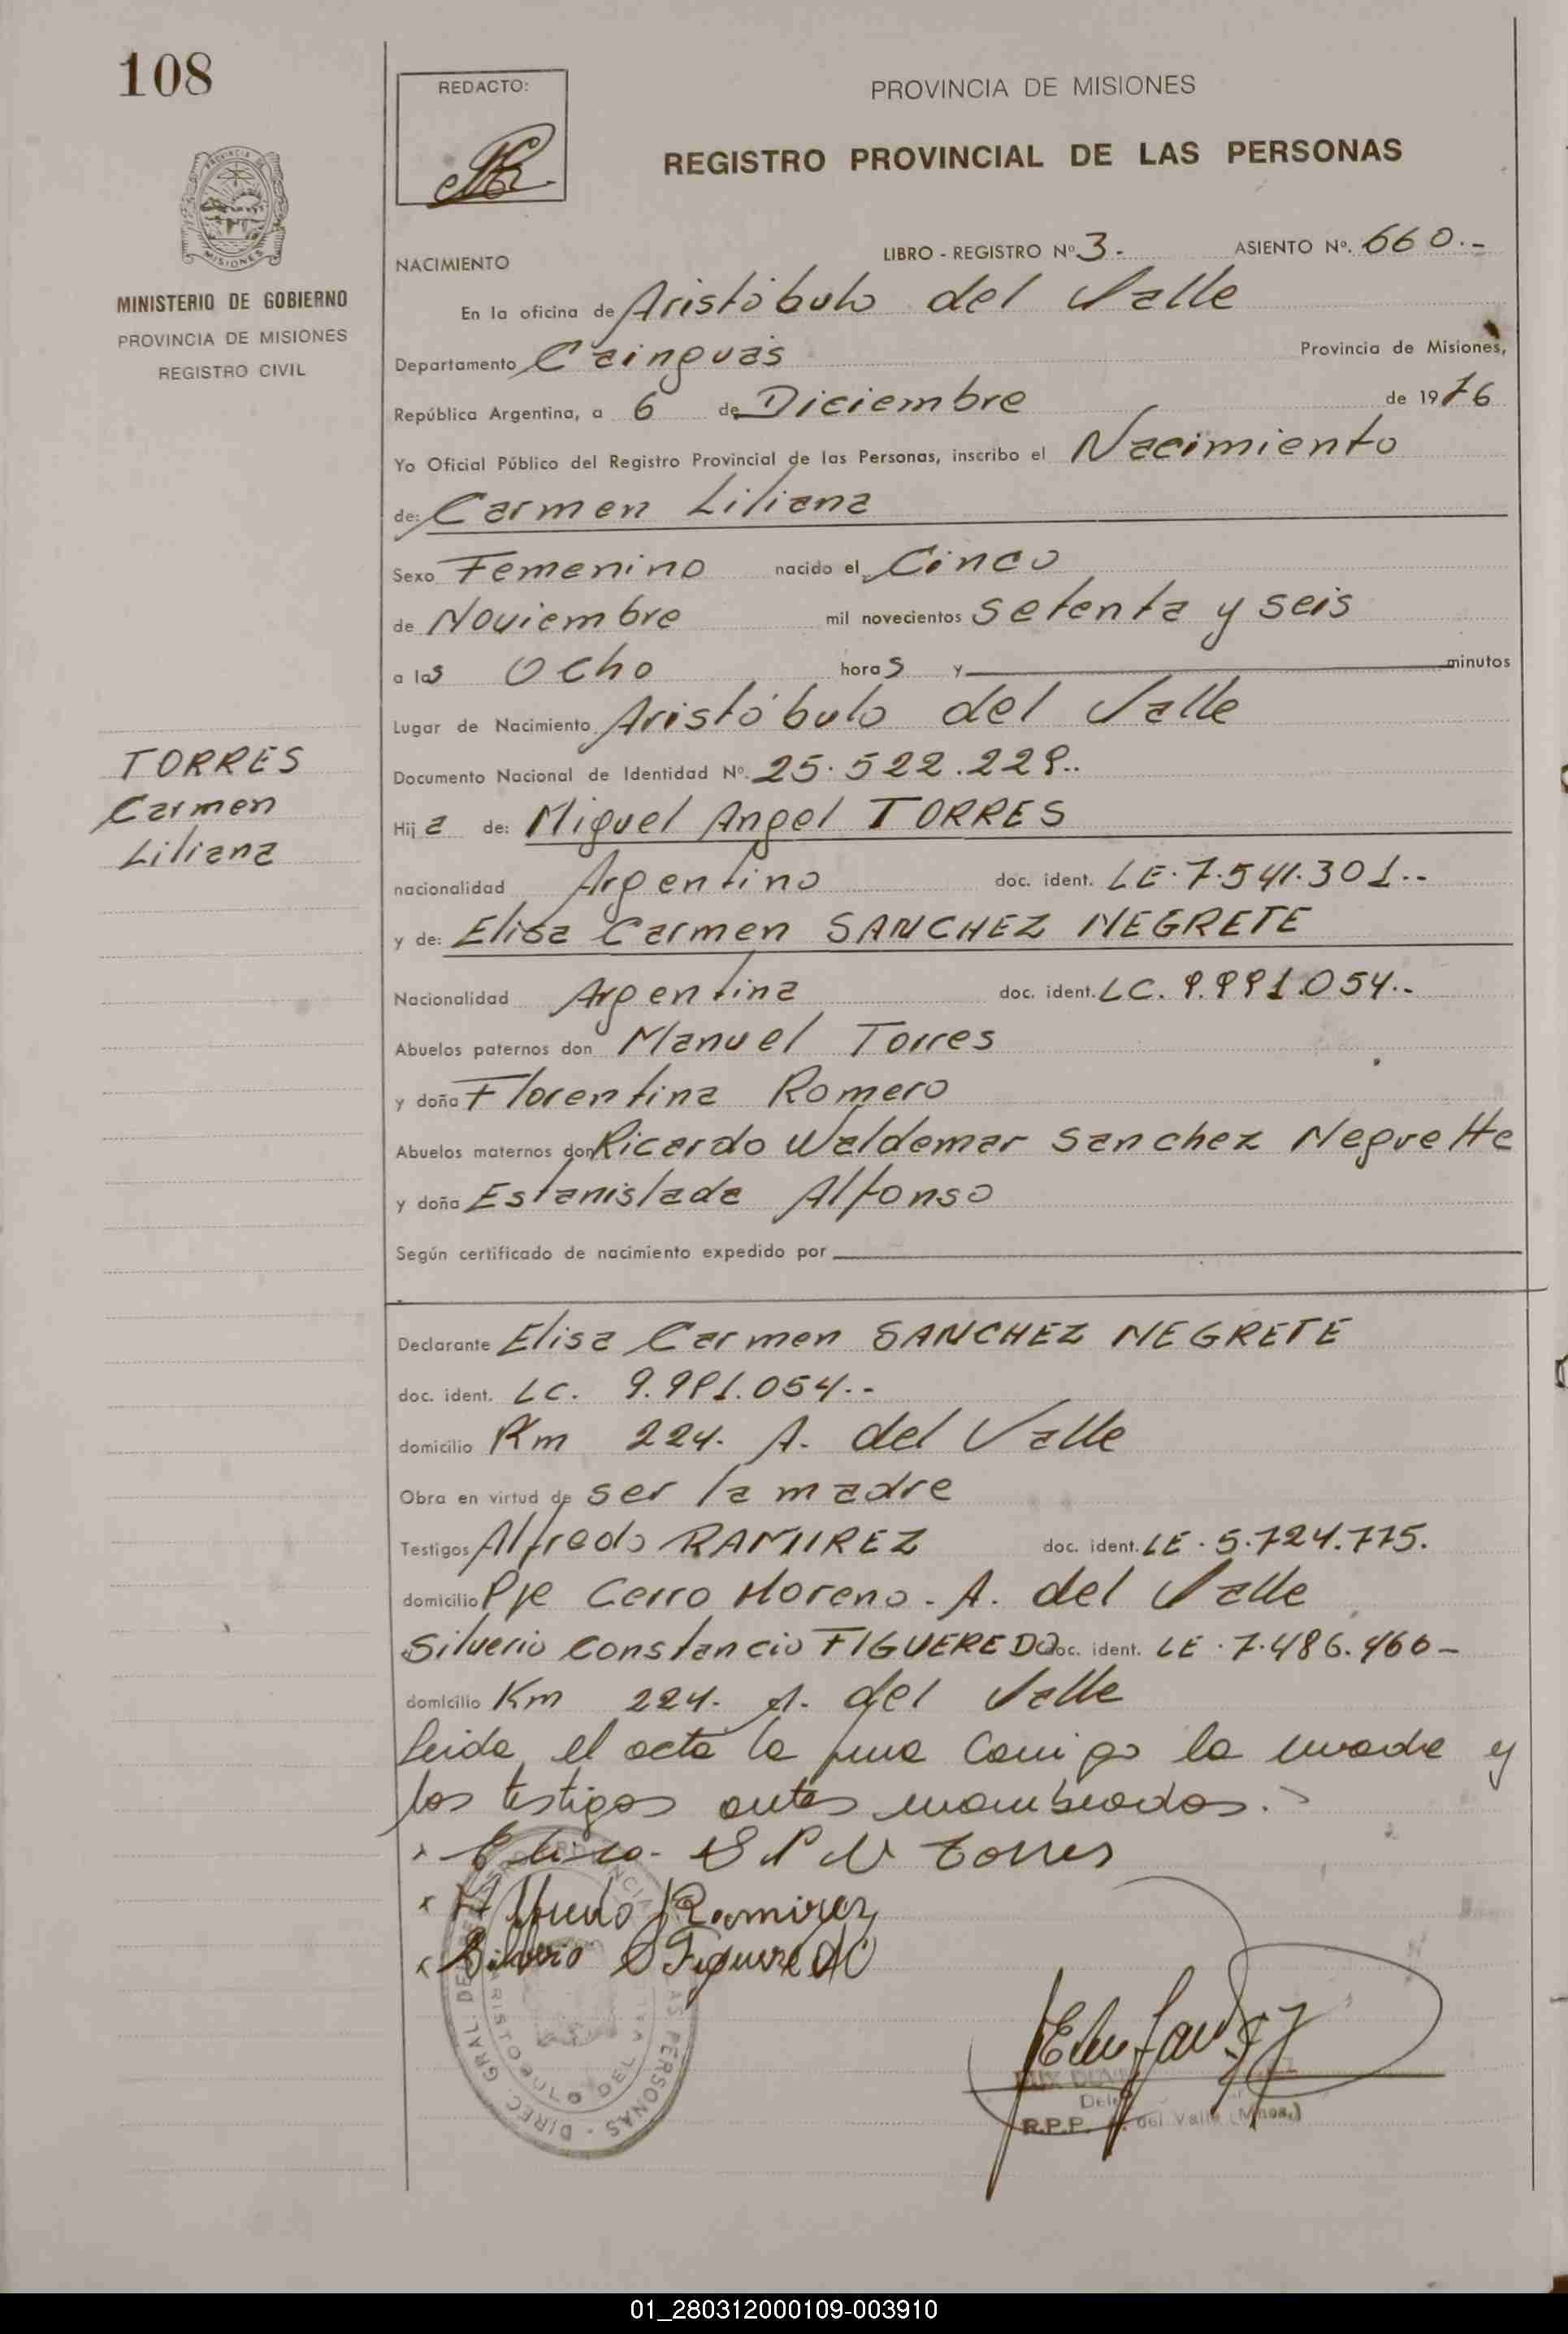 108
REDACTO:
PROVINCIA DE MISIONES
REGISTRO PROVINCIAL DE LAS PERSONAS
MISIONES
MINISTERIO DE GOBIERNO
PROVINCIA DE MISIONES
REGISTRO CIVIL
NACIMIENTO LIBRO - REGISTRO Nº 3.- ASIENTO Nº. 660.-
En la oficina de Aristóbulo del Valle
Departamento Cainguas Provincia de Misiones,
República Argentina, a 6 de Diciembre de 1976
Yo Oficial Público del Registro Provincial de las Personas, inscribo el Nacimiento
de: Carmen Liliana
Sexo Femenino nacido el Cinco
de Noviembre mil novecientos setenta y seis
a las Ocho horas y minutos
Lugar de Nacimiento Aristóbulo del Valle
Documento Nacional de Identidad Nº. 25.522.229..
TORRES
Carmen
Liliana
Hija de: Miguel Angel TORRES
nacionalidad Argentino doc. ident. LE.7.541.301.-
y de: Elisa Carmen SANCHEZ NEGRETE
Nacionalidad Argentina doc. ident. LC. 9.991.054.-
Abuelos paternos don Manuel Torres
y doña Florentina Romero
Abuelos maternos don Ricardo Waldemar Sanchez Negrette
y doña Estanislada Alfonso
Según certificado de nacimiento expedido por
Declarante Elisa Carmen SANCHEZ NEGRETE
doc. ident. LC. 9.991.054.-
domicilio Km 224. A. del Valle
Obra en virtud de ser la madre
Testigos Alfredo RAMIREZ doc. ident. LE. 5.724.775.
domicilio Pje Cerro Moreno. A. del Valle
Silverio Constancio FIGUEREDO doc. ident. LE.7.486.466-
domicilio Km 224. A. del Valle
Leida el acta la firma conmigo la madre y
los testigos antes nombrados.-
Elisa S N Torres
Alfredo Ramirez
Silverio C Figueredo
DIREC. GRAL. DE PERSONAS
ARISTOBULO DEL
R.P.P. A. del Valle (Mnes.)
01_280312000109-003910